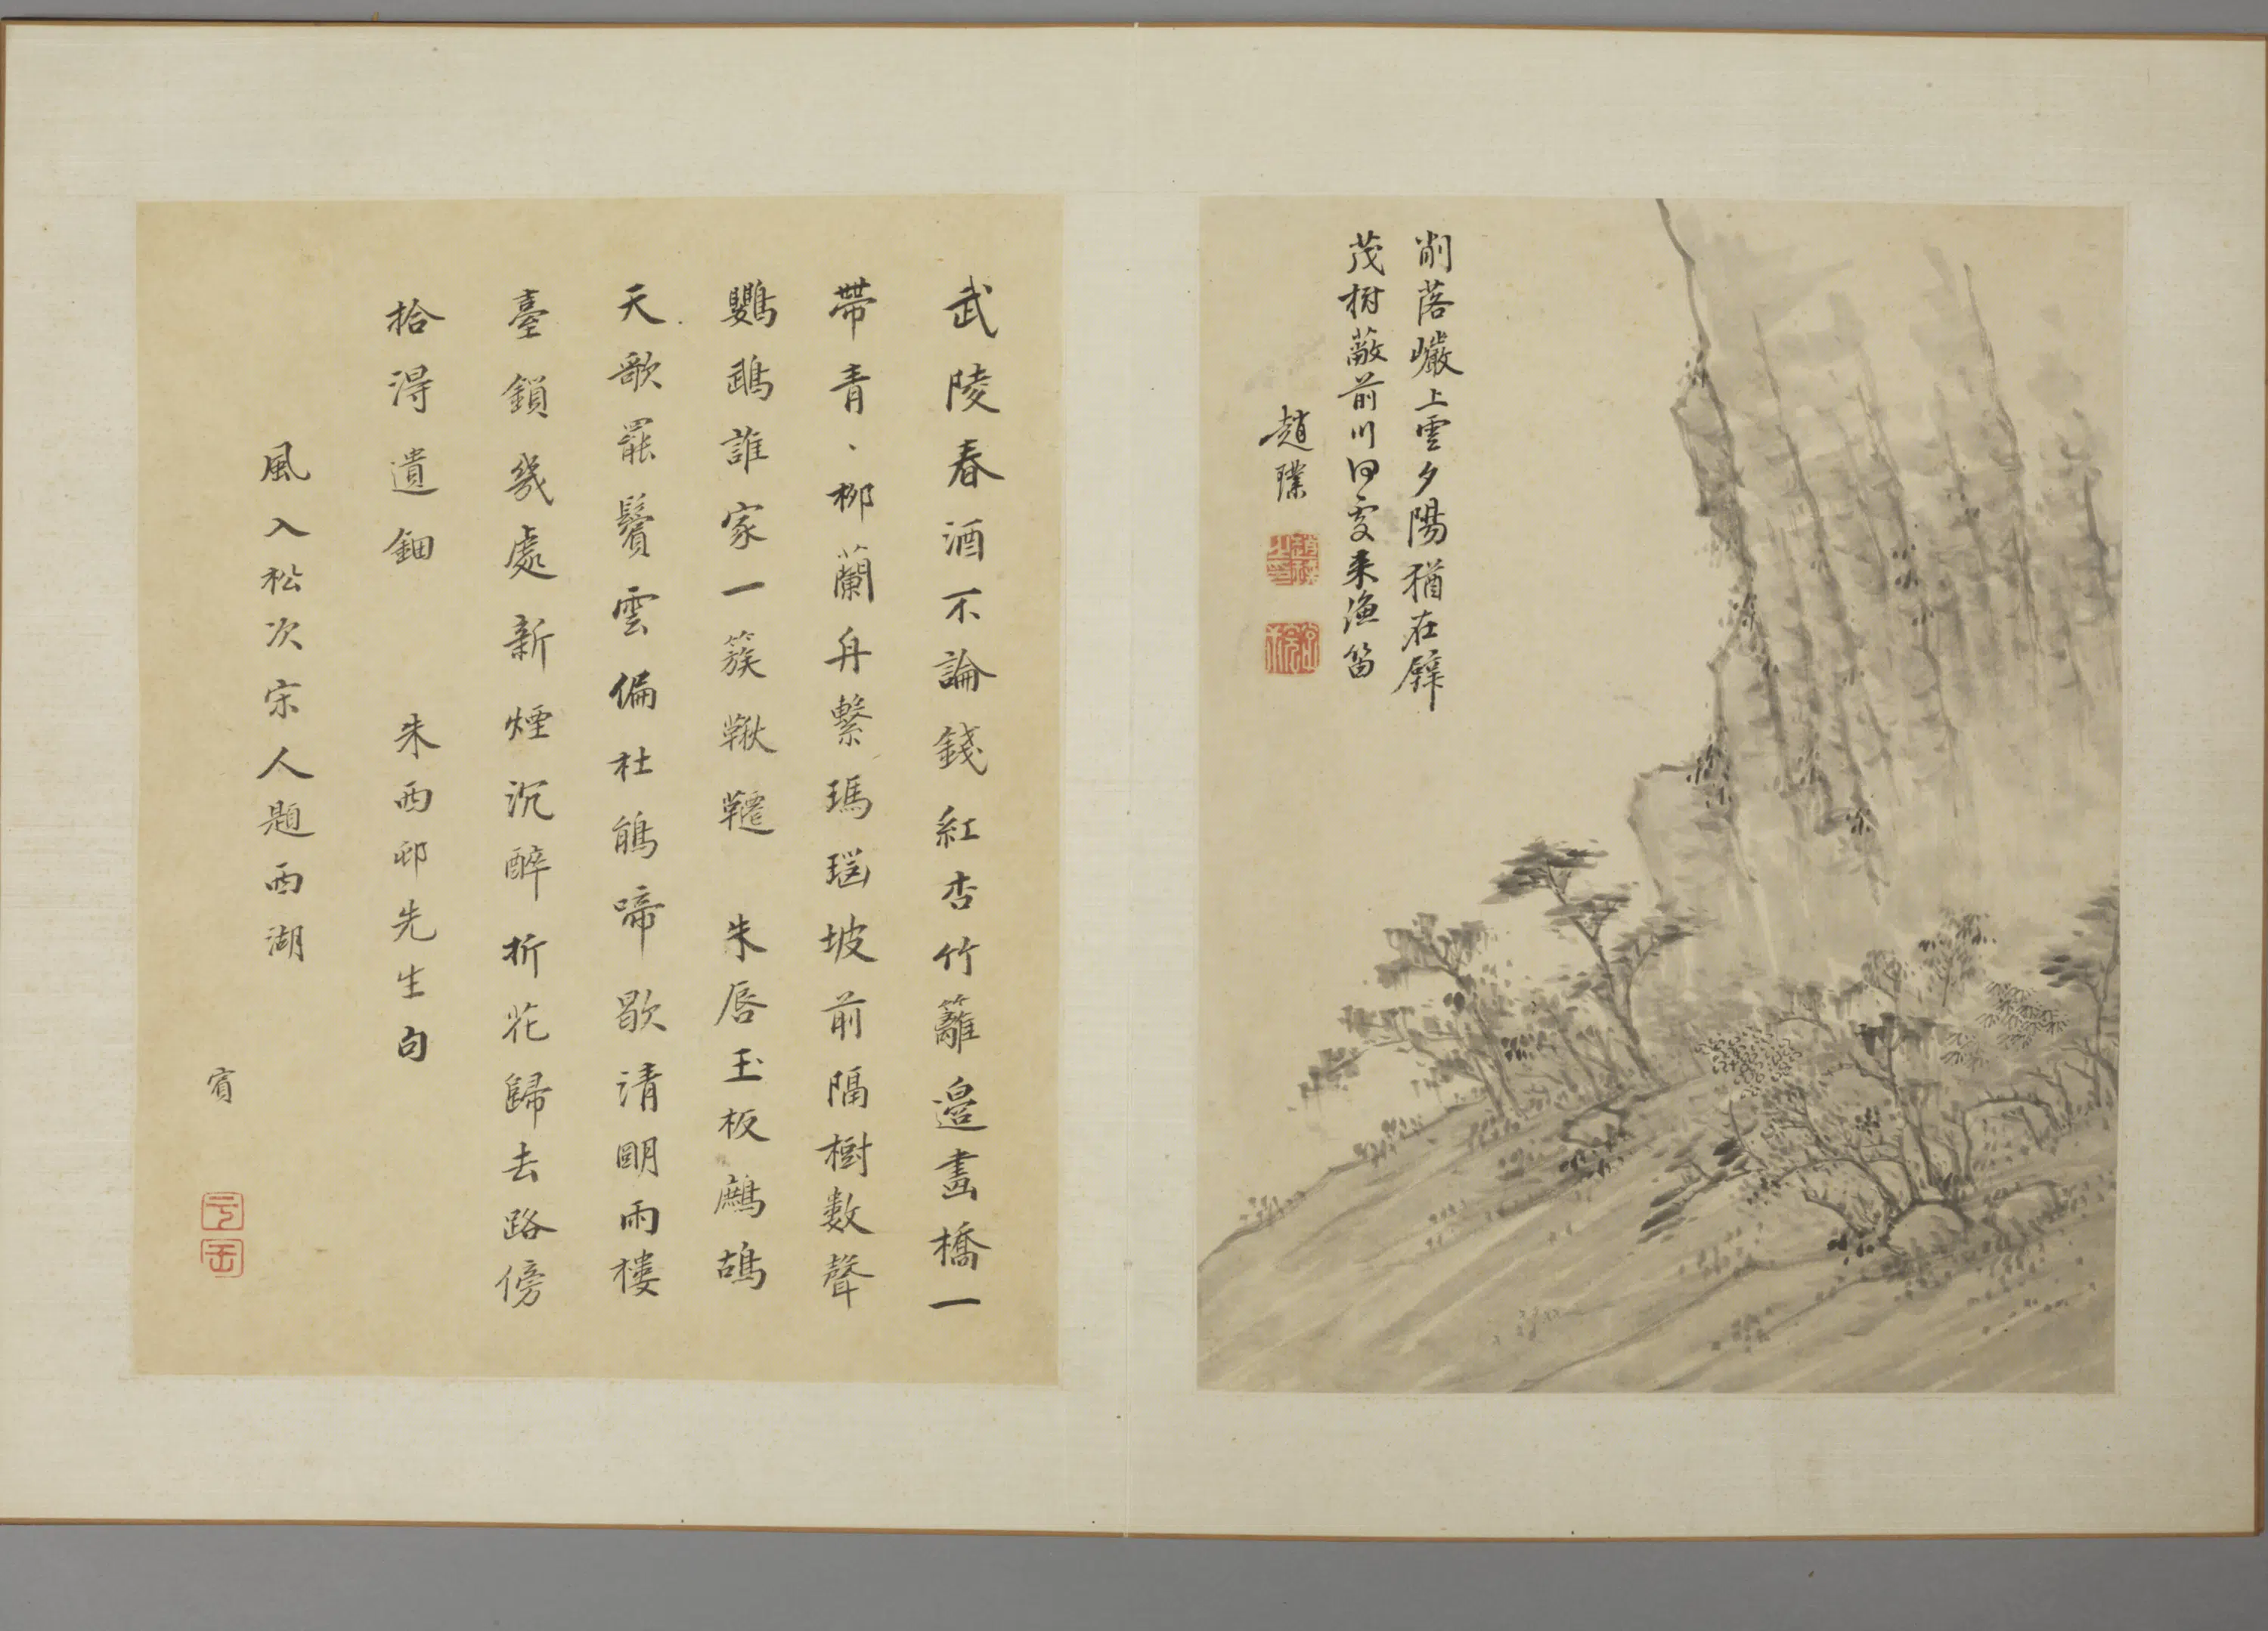 削落巖上雲夕陽猶在壁
茂樹蔽前川何處來漁笛
趙璞
武陵春酒不論錢紅杏竹籬邉畵橋一
帶青、柳蘭舟繫瑪瑙坡前隔樹數聲
鸚鵡誰家一簇鞦韆　朱唇玉板鷓鴣
天歌罷鬢雲偏杜鵑啼歇清明雨樓
臺鎖幾處新煙沉醉折花歸去路傍
拾得遺鈿　朱西邨先生句
風入松次宋人題西湖